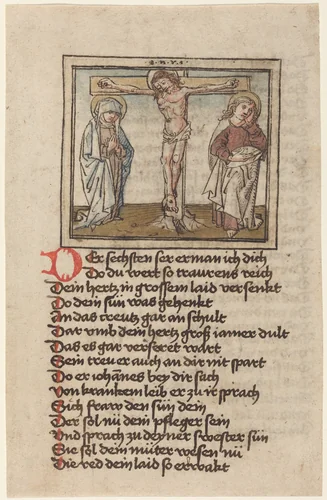 I N R I
Der sechsten ser erman ich dich
Do du wert so traurens reich
Dein hertz in grossem laid versenkt
Do dein sun was gehenkt
An das kreutz gar an schult
Dar umb dein hertz groß iamer dult
Das es gar verseret wart
Sein treu er auch an dir nit spart
Do er iohānes bey dir sach
Von krankem leib er zu ir sprach
Sich fraw den sün dein
Der sol nü dein pfleger sein
Und sprach zu deyner swester sün
Sie sol dein müter wesen nü
Die red dein laid so erwakt